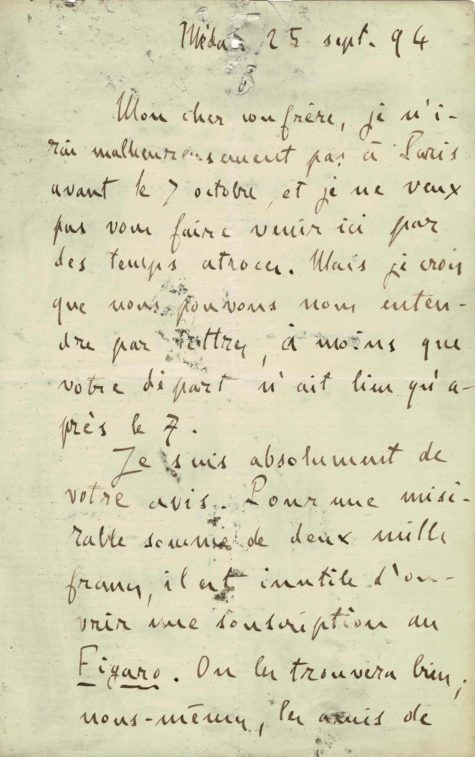 Médan 25 sept. 94
Mon cher confrère, je n'i-
rai malheureusement pas à Paris
avant le 7 octobre, et je ne veux
pas vous faire venir ici par
des temps atroces. Mais je crois
que nous pouvons nous enten-
dre par lettres, à moins que
votre départ n'ait lieu qu'a-
près le 7.
Je suis absolument de
votre avis. Pour une misé-
rable somme de deux mille
francs, il est inutile d'ou-
vrir une souscription au
Figaro. On les trouvera bien,
nous-mêmes, les amis de